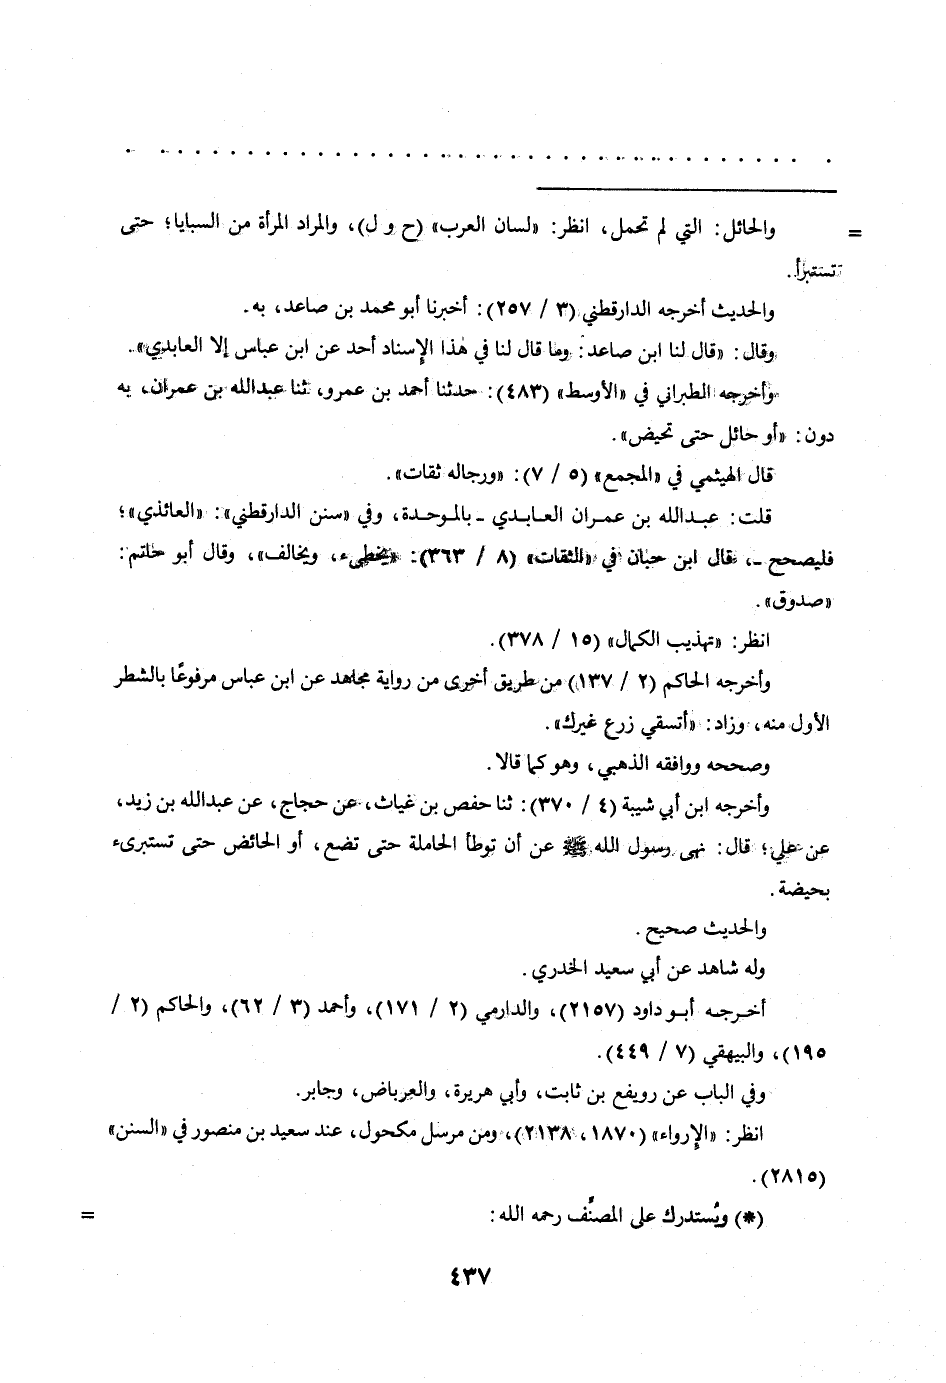 = والحائل: التي لم تحمل، انظر: «لسان العرب» (ح و ل)، والمراد المرأة من السبايا؛ حتى
تستبرأ.
والحديث أخرجه الدارقطني (٣ / ٢٥٧): أخبرنا أبو محمد بن صاعد، به.
وقال: «قال لنا ابن صاعد: وما قال لنا في هٰذا الإسناد أحد عن ابن عباس إلا العابدي».
وأخرجه الطبراني في «الأوسط» (٤٨٣): حدثنا أحمد بن عمرو، ثنا عبدالله بن عمران، به
دون: «أو حائل حتى تحيض».
قال الهيثمي في «المجمع» (٥ / ٧): «ورجاله ثقات».
قلت: عبدالله بن عمران العابدي ـ بالموحدة، وفي «سنن الدارقطني»: «العائذي»؛
فليصحح ـ، قال ابن حبان في «الثقات» (٨ / ٣٦٣): «يخطىء، ويخالف»، وقال أبو حاتم:
«صدوق».
انظر: «تهذيب الكمال» (١٥ / ٣٧٨).
وأخرجه الحاكم (٢ / ١٣٧) من طريق أخرى من رواية مجاهد عن ابن عباس مرفوعًا بالشطر
الأول منه، وزاد: «أتسقي زرع غيرك».
وصححه ووافقه الذهبي، وهو كما قالا.
وأخرجه ابن أبي شيبة (٤ / ٣٧٠): ثنا حفص بن غياث، عن حجاج، عن عبدالله بن زيد،
عن علي؛ قال: نهى رسول الله ﷺ عن أن توطأ الحاملة حتى تضع، أو الحائض حتى تستبرىء
بحيضة.
والحديث صحيح.
وله شاهد عن أبي سعيد الخدري.
أخرجه أبو داود (٢١٥٧)، والدارمي (٢ / ١٧١)، وأحمد (٣ / ٦٢)، والحاكم (٢ /
١٩٥)، والبيهقي (٧ / ٤٤٩).
وفي الباب عن رويفع بن ثابت، وأبي هريرة، والعرباض، وجابر.
انظر: «الإرواء» (١٨٧٠، ٢١٣٨)، ومن مرسل مكحول، عند سعيد بن منصور في «السنن»
(٢٨١٥).
(*) ويُستدرك على المصنِّف رحمه الله: =
٤٣٧